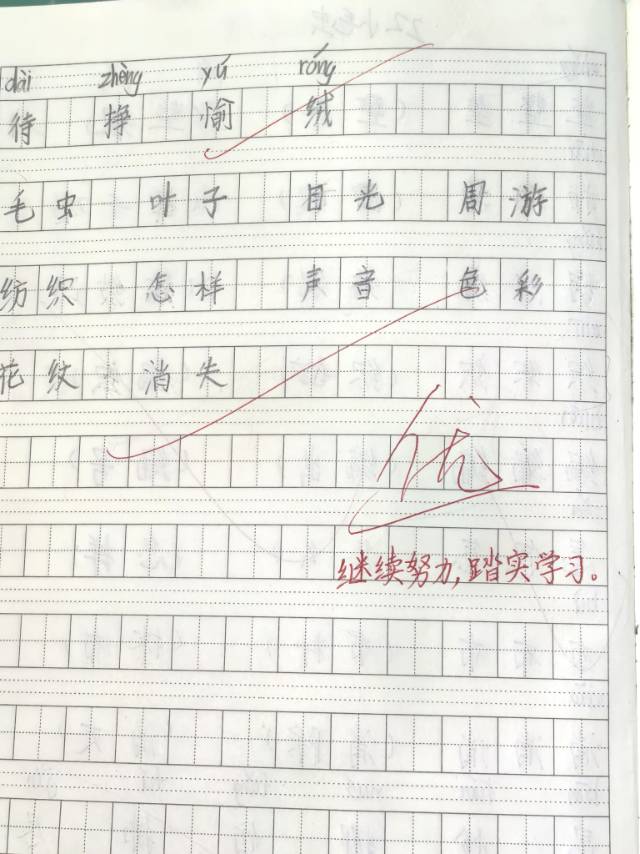 dài zhèng yú róng
待 挣 愉 绒
毛虫 叶子 目光 周游
纺织 怎样 声音 色彩
花纹 消失
优
继续努力,踏实学习。